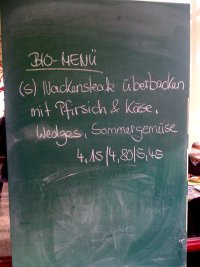 BIO-MENÜ
(S) Nackensteak überbacken
mit Pfirsich & Käse,
Wedges, Sommergemüse
4,15/4,80/5,45